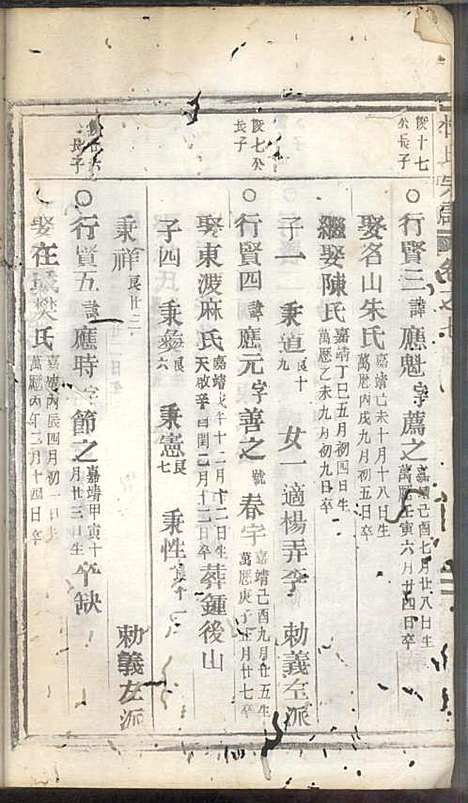 段十七
公長子
〇行賢三諱應魁字薦之嘉靖己酉七月廿八日生
萬歷壬寅六月廿四日卒
娶名山朱氏嘉靖己未十月十八日生
萬歷丙戌九月初五日卒
繼娶陳氏嘉靖丁巳五月初四日生
萬歷乙未九月初九日卒
子一 秉道良十 女一適楊弄李 勅義左派
段七公
長子
〇行賢四諱應元字善之號春宇嘉靖己酉九月廿五生
萬歷庚子 月廿七卒
娶東渡麻氏嘉靖 年十二月十二日生
天啟辛酉閏二月十二日卒葬鍾後山
子四 秉彝良六 秉憲良七 秉性良十一
秉祥良廿三 勅義左派
公
長子
〇行賢五諱應時字節之嘉靖甲寅十
月廿三日生卒缺
娶在城樊氏嘉靖丙辰四月初一日生
萬歷丙午二月十四日卒